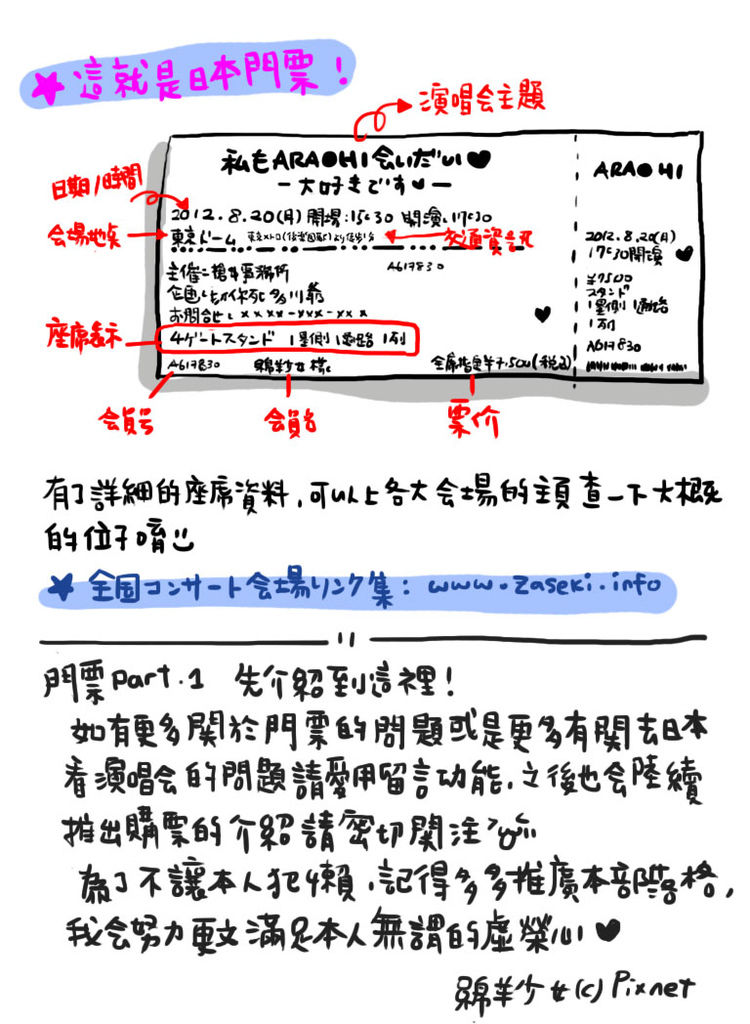 ★這就是日本門票！
演唱会主題
私もARA●HI会いだい♥
ー大好きです♥ー
ARA●HI
日期/時間
2012.8.20(月) 開場:15:30 開演:17:30
会場地点
東京ドーム
交通資訊
2012.8.20(月)
17:30開演
主催:
事務所
A617830
¥7500
スタンド
お問合せ: xxxx-xxx-xxx
座席表示
4ゲートスタンド 1塁側 1通路 1列
1塁側 1通路
1列
A617830
A617830 綿羊少女様
全席指定¥7,500(税込)
会員号
会員名
票价
有了詳細的座席資料,可以上各大会場的主頁查一下大概
的位子唷
★全国コンサート会場リンク集: www.zaseki.info
門票part.1 先介紹到這裡!
如有更多關於門票的問題或是更多有関去日本
看演唱会的問題請愛用留言功能,之後也会陸續
推出購票的介紹請密切関注
為了不讓本人犯懶,記得多多推廣本部落格,
我会努力更文滿足本人無謂的虛榮心♥
綿羊少女(c)Pixnet